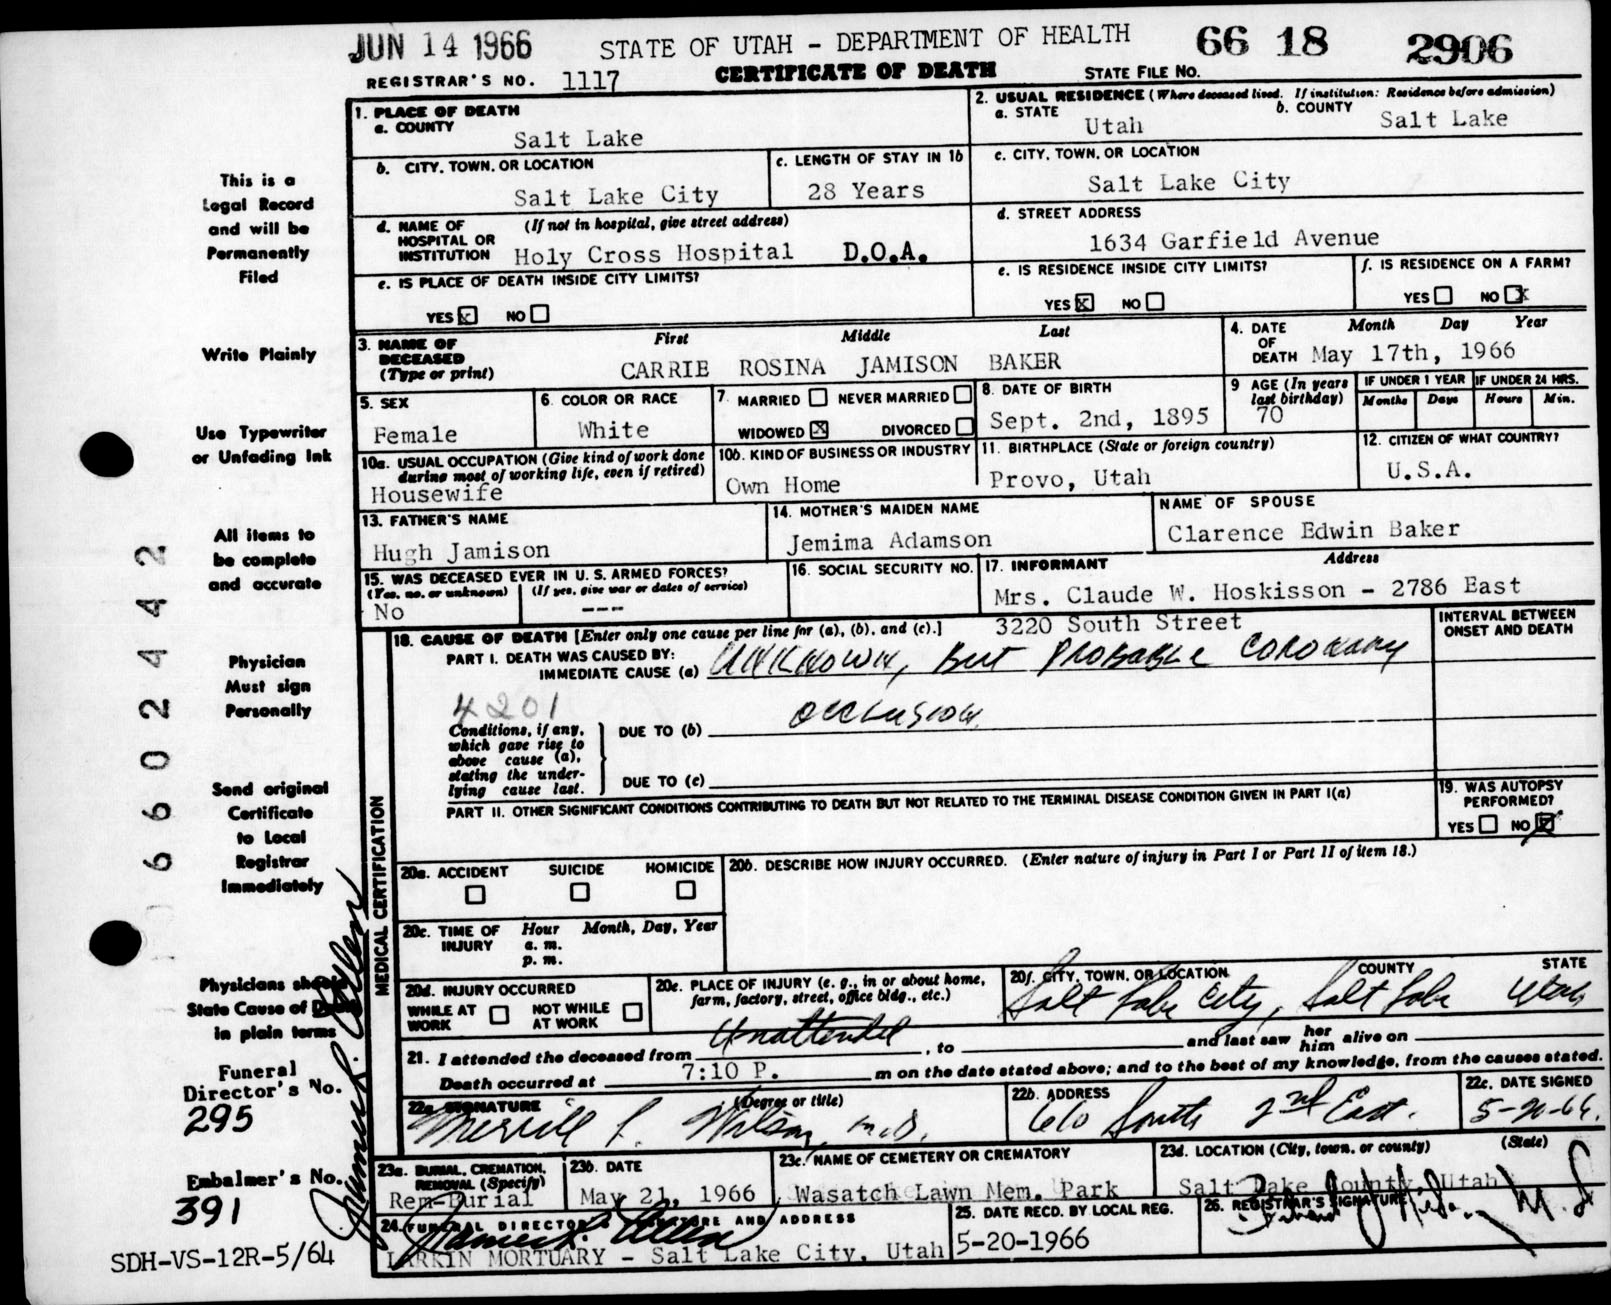 JUN 14 1966 STATE OF UTAH - DEPARTMENT OF HEALTH 66 18 2906
REGISTRAR'S NO. 1117 CERTIFICATE OF DEATH STATE FILE NO.
1. PLACE OF DEATH
a. COUNTY
Salt Lake
2. USUAL RESIDENCE (Where deceased lived. If institution: Residence before admission)
a. STATE b. COUNTY
Utah Salt Lake
b. CITY, TOWN, OR LOCATION
Salt Lake City
c. LENGTH OF STAY IN 1b
28 Years
c. CITY, TOWN, OR LOCATION
Salt Lake City
d. NAME OF HOSPITAL OR INSTITUTION (If not in hospital, give street address)
Holy Cross Hospital D.O.A.
d. STREET ADDRESS
1634 Garfield Avenue
e. IS PLACE OF DEATH INSIDE CITY LIMITS?
YES x NO
e. IS RESIDENCE INSIDE CITY LIMITS?
YES x NO
f. IS RESIDENCE ON A FARM?
YES NO x
3. NAME OF DECEASED (Type or print)
First Middle Last
CARRIE ROSINA JAMISON BAKER
4. DATE OF DEATH Month Day Year
May 17th, 1966
5. SEX
Female
6. COLOR OR RACE
White
7. MARRIED NEVER MARRIED
WIDOWED x DIVORCED
8. DATE OF BIRTH
Sept. 2nd, 1895
9 AGE (In years last birthday)
70
IF UNDER 1 YEAR IF UNDER 24 HRS.
Months Days Hours Min.
10a. USUAL OCCUPATION (Give kind of work done during most of working life, even if retired)
Housewife
10b. KIND OF BUSINESS OR INDUSTRY
Own Home
11. BIRTHPLACE (State or foreign country)
Provo, Utah
12. CITIZEN OF WHAT COUNTRY?
U.S.A.
13. FATHER'S NAME
Hugh Jamison
14. MOTHER'S MAIDEN NAME
Jemima Adamson
NAME OF SPOUSE
Clarence Edwin Baker
15. WAS DECEASED EVER IN U. S. ARMED FORCES?
(Yes, no, or unknown) (If yes, give war or dates of service)
No ---
16. SOCIAL SECURITY NO.
17. INFORMANT Address
Mrs. Claude W. Hoskisson - 2786 East
3220 South Street
18. CAUSE OF DEATH [Enter only one cause per line for (a), (b), and (c).]
INTERVAL BETWEEN ONSET AND DEATH
PART I. DEATH WAS CAUSED BY:
IMMEDIATE CAUSE (a) UNKNOWN, BUT PROBABLE CORONARY
4201
Conditions, if any, which gave rise to above cause (a), stating the underlying cause last.
DUE TO (b) OCCLUSION
DUE TO (c)
PART II. OTHER SIGNIFICANT CONDITIONS CONTRIBUTING TO DEATH BUT NOT RELATED TO THE TERMINAL DISEASE CONDITION GIVEN IN PART I(a)
19. WAS AUTOPSY PERFORMED?
YES NO x
MEDICAL CERTIFICATION
20a. ACCIDENT SUICIDE HOMICIDE
20b. DESCRIBE HOW INJURY OCCURRED. (Enter nature of injury in Part I or Part II of item 18.)
20c. TIME OF INJURY Hour Month, Day, Year
a. m.
p. m.
20d. INJURY OCCURRED
WHILE AT WORK NOT WHILE AT WORK
20e. PLACE OF INJURY (e. g., in or about home, farm, factory, street, office bldg., etc.)
20f. CITY, TOWN, OR LOCATION COUNTY STATE
Salt Lake City, Salt Lake Utah
21. I attended the deceased from Unattended, to and last saw her him alive on
Death occurred at 7:10 P. m on the date stated above; and to the best of my knowledge, from the causes stated.
22a SIGNATURE (Degree or title)
Merrill L. Wilson, M.D.
22b. ADDRESS
610 South 2nd East.
22c. DATE SIGNED
5-20-66.
23a. BURIAL, CREMATION, REMOVAL (Specify)
Rem-Burial
23b. DATE
May 21, 1966
23c. NAME OF CEMETERY OR CREMATORY
Wasatch Lawn Mem. Park
23d. LOCATION (City, town, or county) (State)
Salt Lake County, Utah
24. FUNERAL DIRECTOR'S SIGNATURE AND ADDRESS
LARKIN MORTUARY - Salt Lake City, Utah
25. DATE RECD. BY LOCAL REG.
5-20-1966
26. REGISTRAR'S SIGNATURE
This is a
Legal Record
and will be
Permanently
Filed
Write Plainly
Use Typewriter
or Unfading Ink
All items to
be complete
and accurate
Physician
Must sign
Personally
Send original
Certificate
to Local
Registrar
Immediately
Physicians should
State Cause of Death
in plain terms
Funeral
Director's No.
295
Embalmer's No.
391
SDH-VS-12R-5/64
66024442